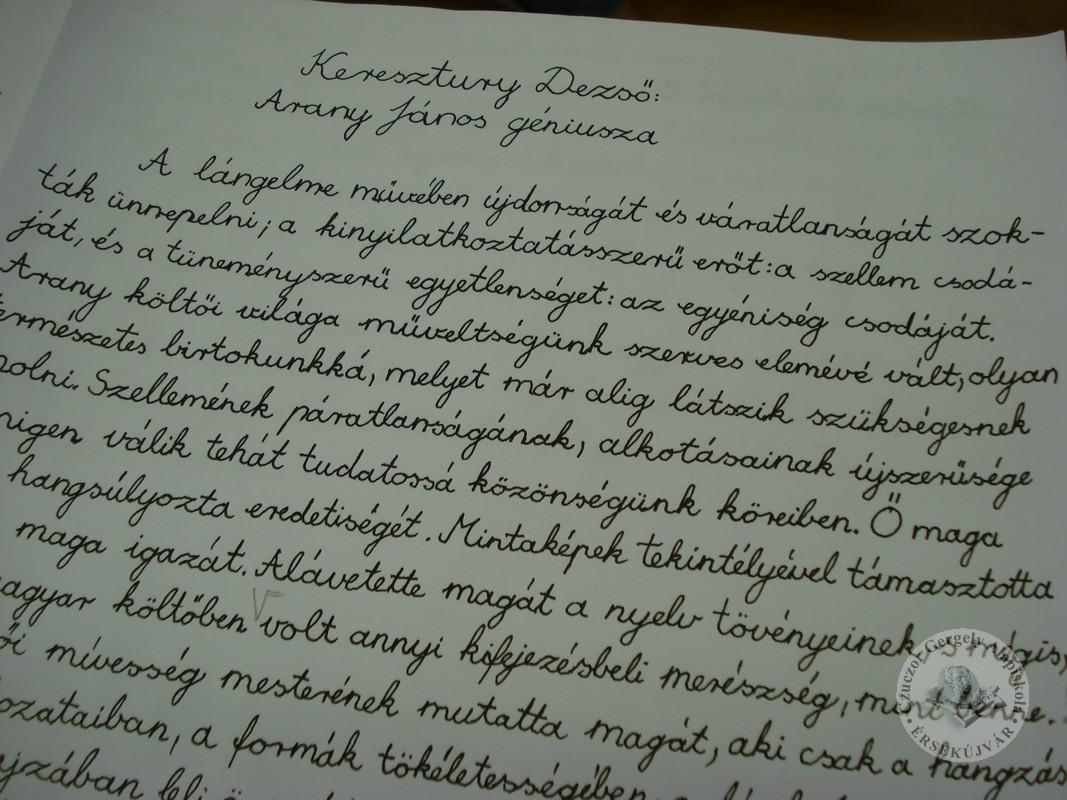 Keresztury Dezső:
Arany János géniusza
A lángelme művében újdonságát és váratlanságát szok-
ták ünnepelni; a kinyilatkoztatásszerű erőt: a szellem csodá-
ját, és a tüneményszerű egyetlenséget: az egyéniség csodáját.
Arany költői világa műveltségünk szerves elemévé vált, olyan
ermészetes birtokunkká, melyet már alig látszik szükségesnek
olni. Szellemének páratlanságának, alkotásainak újszerűsége
nigen válik tehát tudatossá közönségünk köreiben. Ő maga
hangsúlyozta eredetiségét. Mintaképek tekintélyével támasztotta
maga igazát. Alávetette magát a nyelv tövényeinek s mégis,
agyar költőben volt annyi kifejezésbeli merészség, mint benne.
ői mívesség mesterének mutatta magát, aki csak a hangzás
ozataiban, a formák tökéletességében
jzában leli
Czuczor Gergely Alapiskola
ÉRSEKÚJVÁR